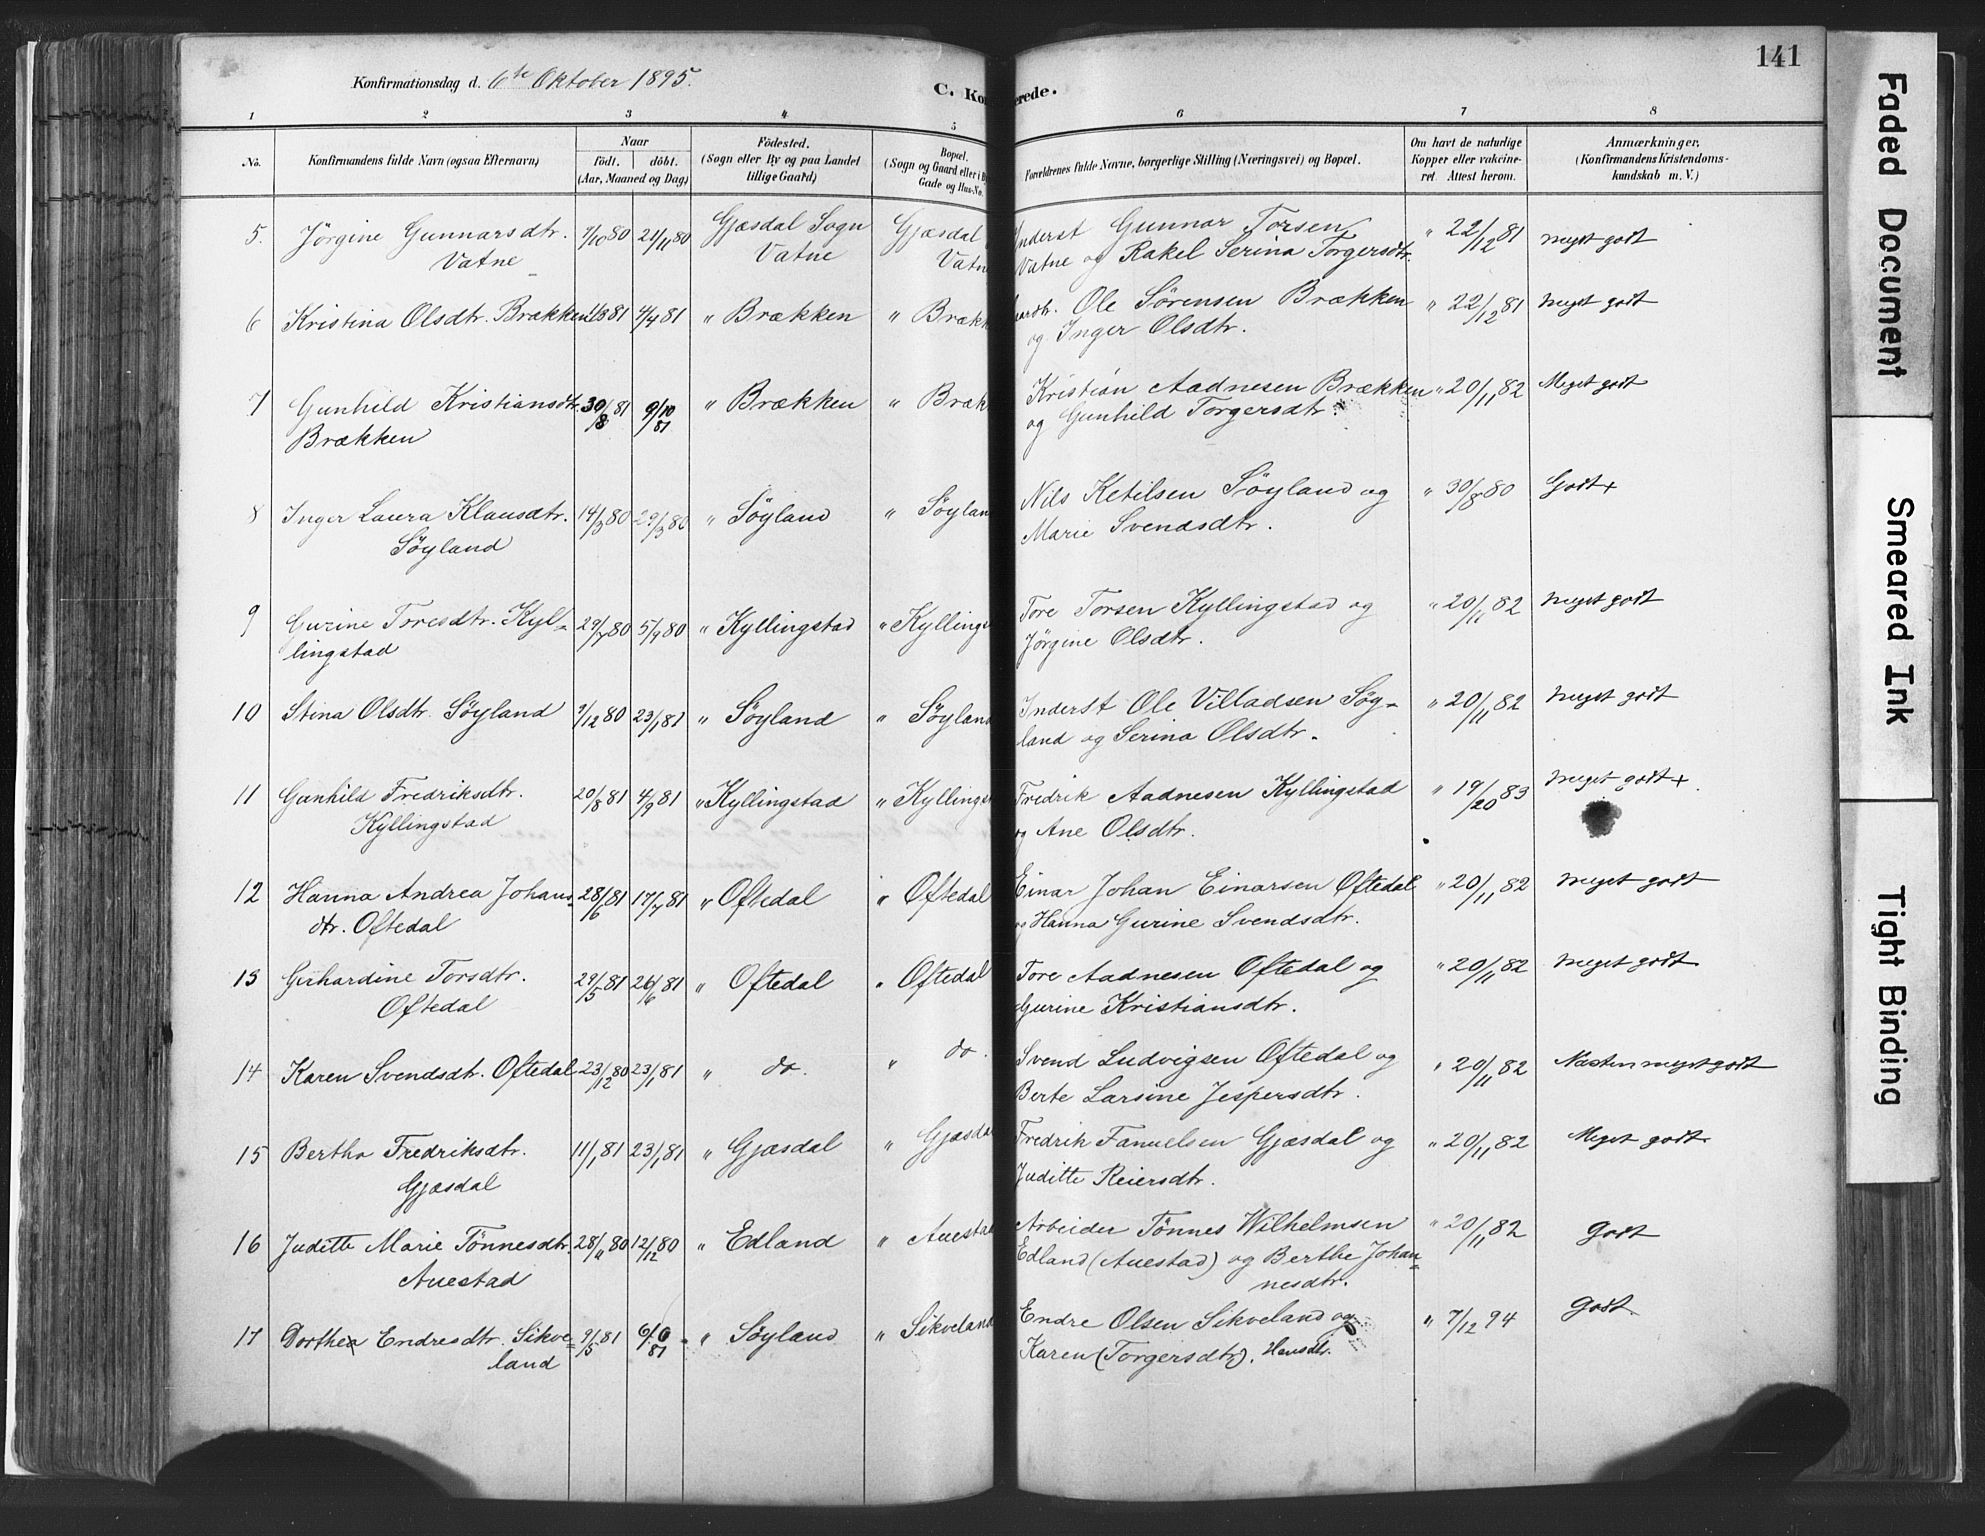 141
Konfirmationsdag d. 6te Oktober 1895.
C. Kon erede.
1 2 3 4 5 6 7 8
No.
Konfirmandens fulde Navn (ogsaa Efternavn)
Naar
födt. döbt.
(Aar, Maaned og Dag)
Födested.
(Sogn eller By og paa Landet
tillige Gaard)
Bopæl.
(Sogn og Gaard eller i B
Gade og Hus-No.
Forældrenes fulde Navne, borgerlige Stilling (Næringsvei) og Bopæl.
Om havt de naturlige
Kopper eller vakcine-
ret. Attest herom.
Anmærkninger.
(Konfirmandens Kristendoms-
kundskab m. V.)
5. Jörgine Gunnarsdtr. 7/10 80 21/11 80 Gjæsdal Sogn Gjæsdal Inderst Gunnar Torsen " 22/12 81 Meget godt
Vatne Vatne Vatne Vatne og Rakel Serina Torgersdtr.
6 Kristina Olsdtr. Brækken 81 7/4 81 " Brækken " Brækk Ole Sörensen Brækken " 22/12 81 Meget godt
og Inger Olsdtr.
7 Gunhild Kristiansdtr. 30/8 81 9/10 81 " Brækken " Bræk Kristian Aadnesen Brækken " 20/11 82 Meget godt
Brækken og Gunhild Torgersdtr.
8 Inger Laura Klausdtr. 14/3 80 29/3 80 " Söyland " Söylan Nils Ketilsen Söyland og " 30/8 80 Godt +
Söyland Marie Svendsdtr.
9 Gurine Toresdtr. Kyl= 29/7 80 5/9 80 " Kyllingstad " Kyllings Tore Torsen Kyllingstad og " 20/11 82 Meget godt
lingstad Jörgine Olsdtr.
10 Stina Olsdtr. Söyland 7/12 80 23/1 81 " Söyland " Söyland Inderst Ole Villadsen Söy- " 20/11 82 Meget godt
land og Serina Olsdtr.
11 Gunhild Fredriksdtr. 20/8 81 4/9 81 " Kyllingstad " Kyllings Fredrik Aadnesen Kyllingstad " 19/20 83 Meget godt +
Kyllingstad og Ane Olsdtr.
12 Hanna Andrea Johans= 28/6 81 17/7 81 " Oftedal " Oftedal Einar Johan Einarsen Oftedal " 20/11 82 Meget godt
dtr. Oftedal og Hanna Gurine Svendsdtr.
13 Gerhardine Torsdtr. 29/5 81 26/6 81 " Oftedal " Oftedal Tore Aadnesen Oftedal og " 20/11 82 Meget godt
Oftedal Gurine Kristiansdtr.
14 Karen Svendsdtr. Oftedal 23/12 80 23/1 81 " do. " do. Svend Ludvigsen Oftedal og " 20/11 82 Næsten meget godt
Berte Larsine Jespersdtr.
15 Bertha Fredriksdtr. 11/1 81 23/1 81 " Gjæsdal " Gjæsda Fredrik Fanuelsen Gjæsdal og " 20/11 82 Meget godt
Gjæsdal Juditte Reiersdtr.
16 Juditte Marie Tönnesdtr. 28/11 80 12/12 80 " Edland " Auestad Arbeider Tönnes Wilhelmsen " 20/11 82 Godt
Auestad Edland (Auestad) og Berthe Johan=
nesdtr.
17 Dorthea Endresdtr. Sikve= 9/5 81 6/6 81 " Söyland " Sikveland Endre Olsen Sikveland og " 7/12 94 Godt.
land Karen (Torgersdtr), Hansdtr.
Faded Document
Smeared Ink
Tight Binding